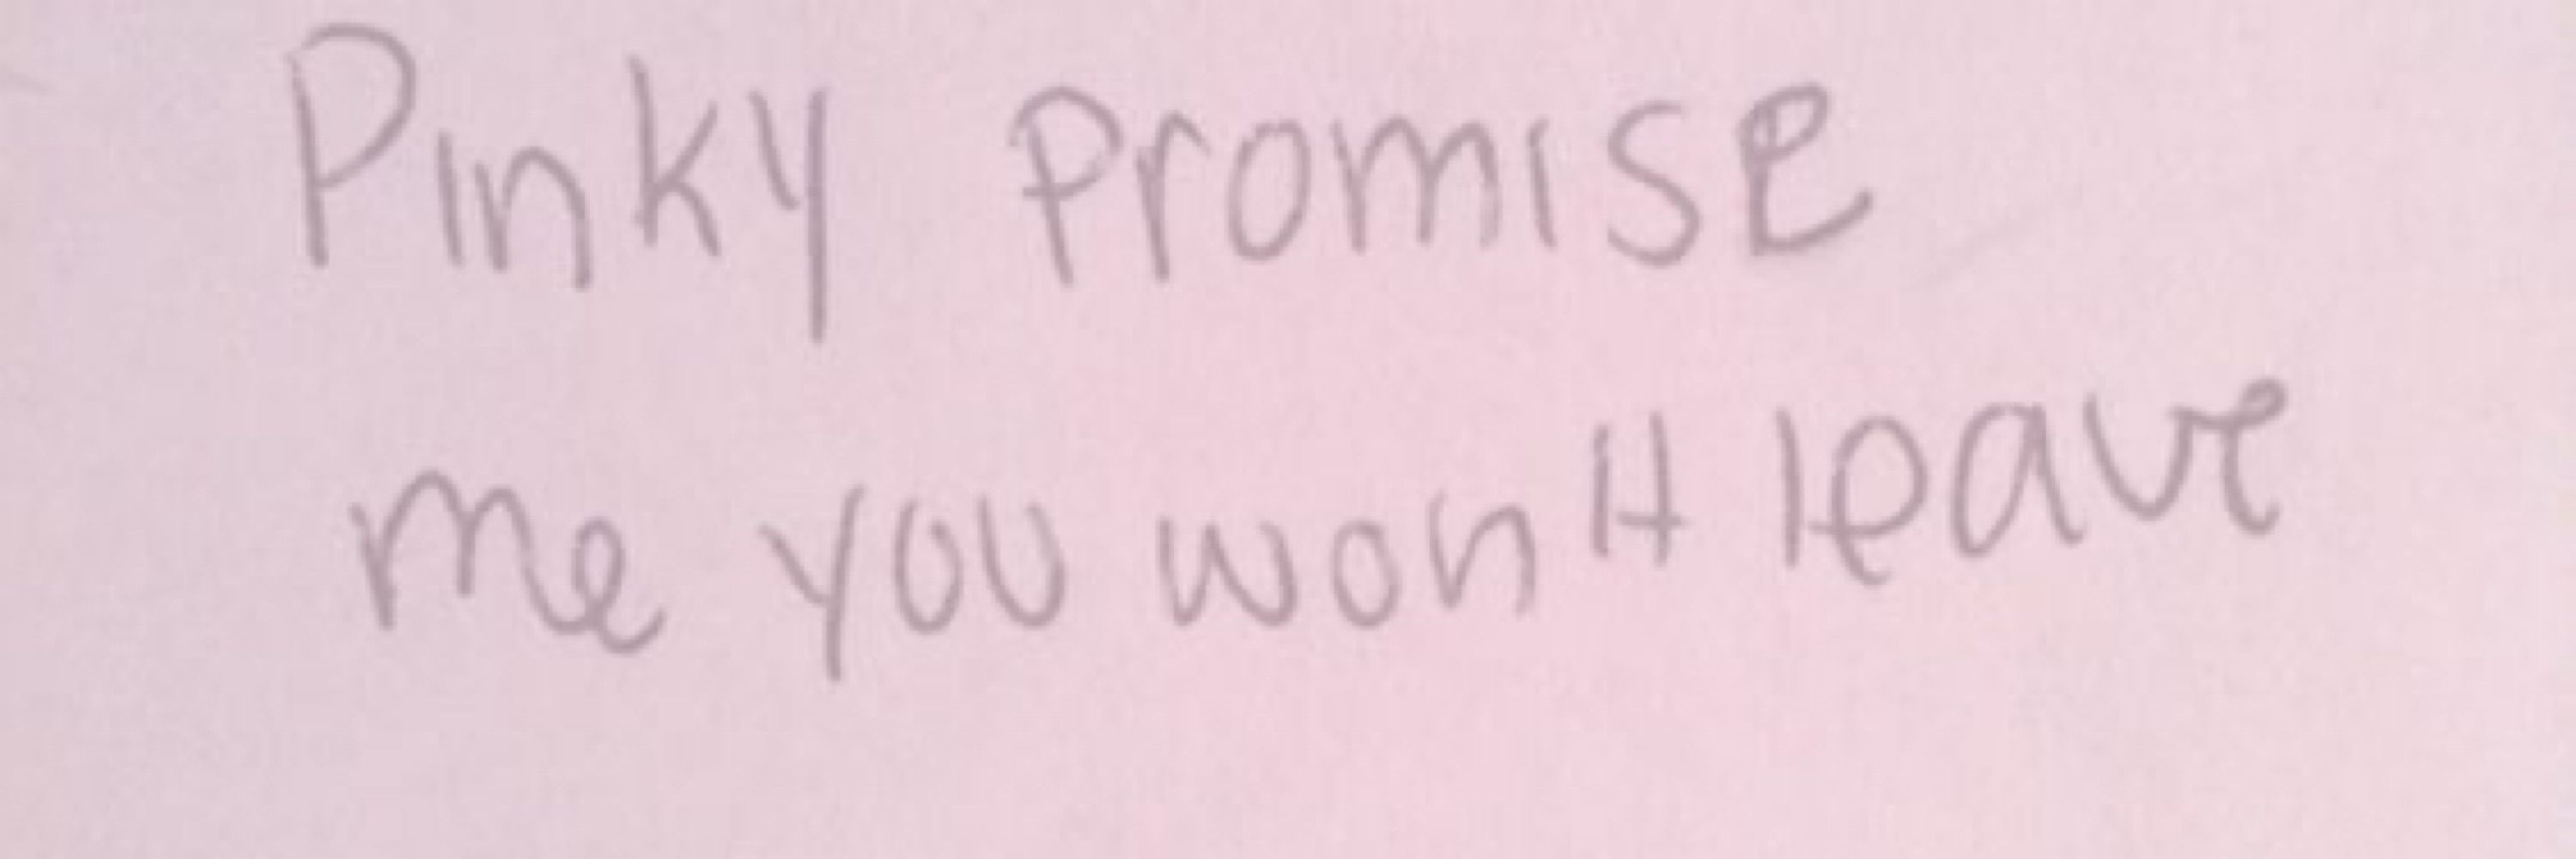 Pinky Promise
me you won't leave